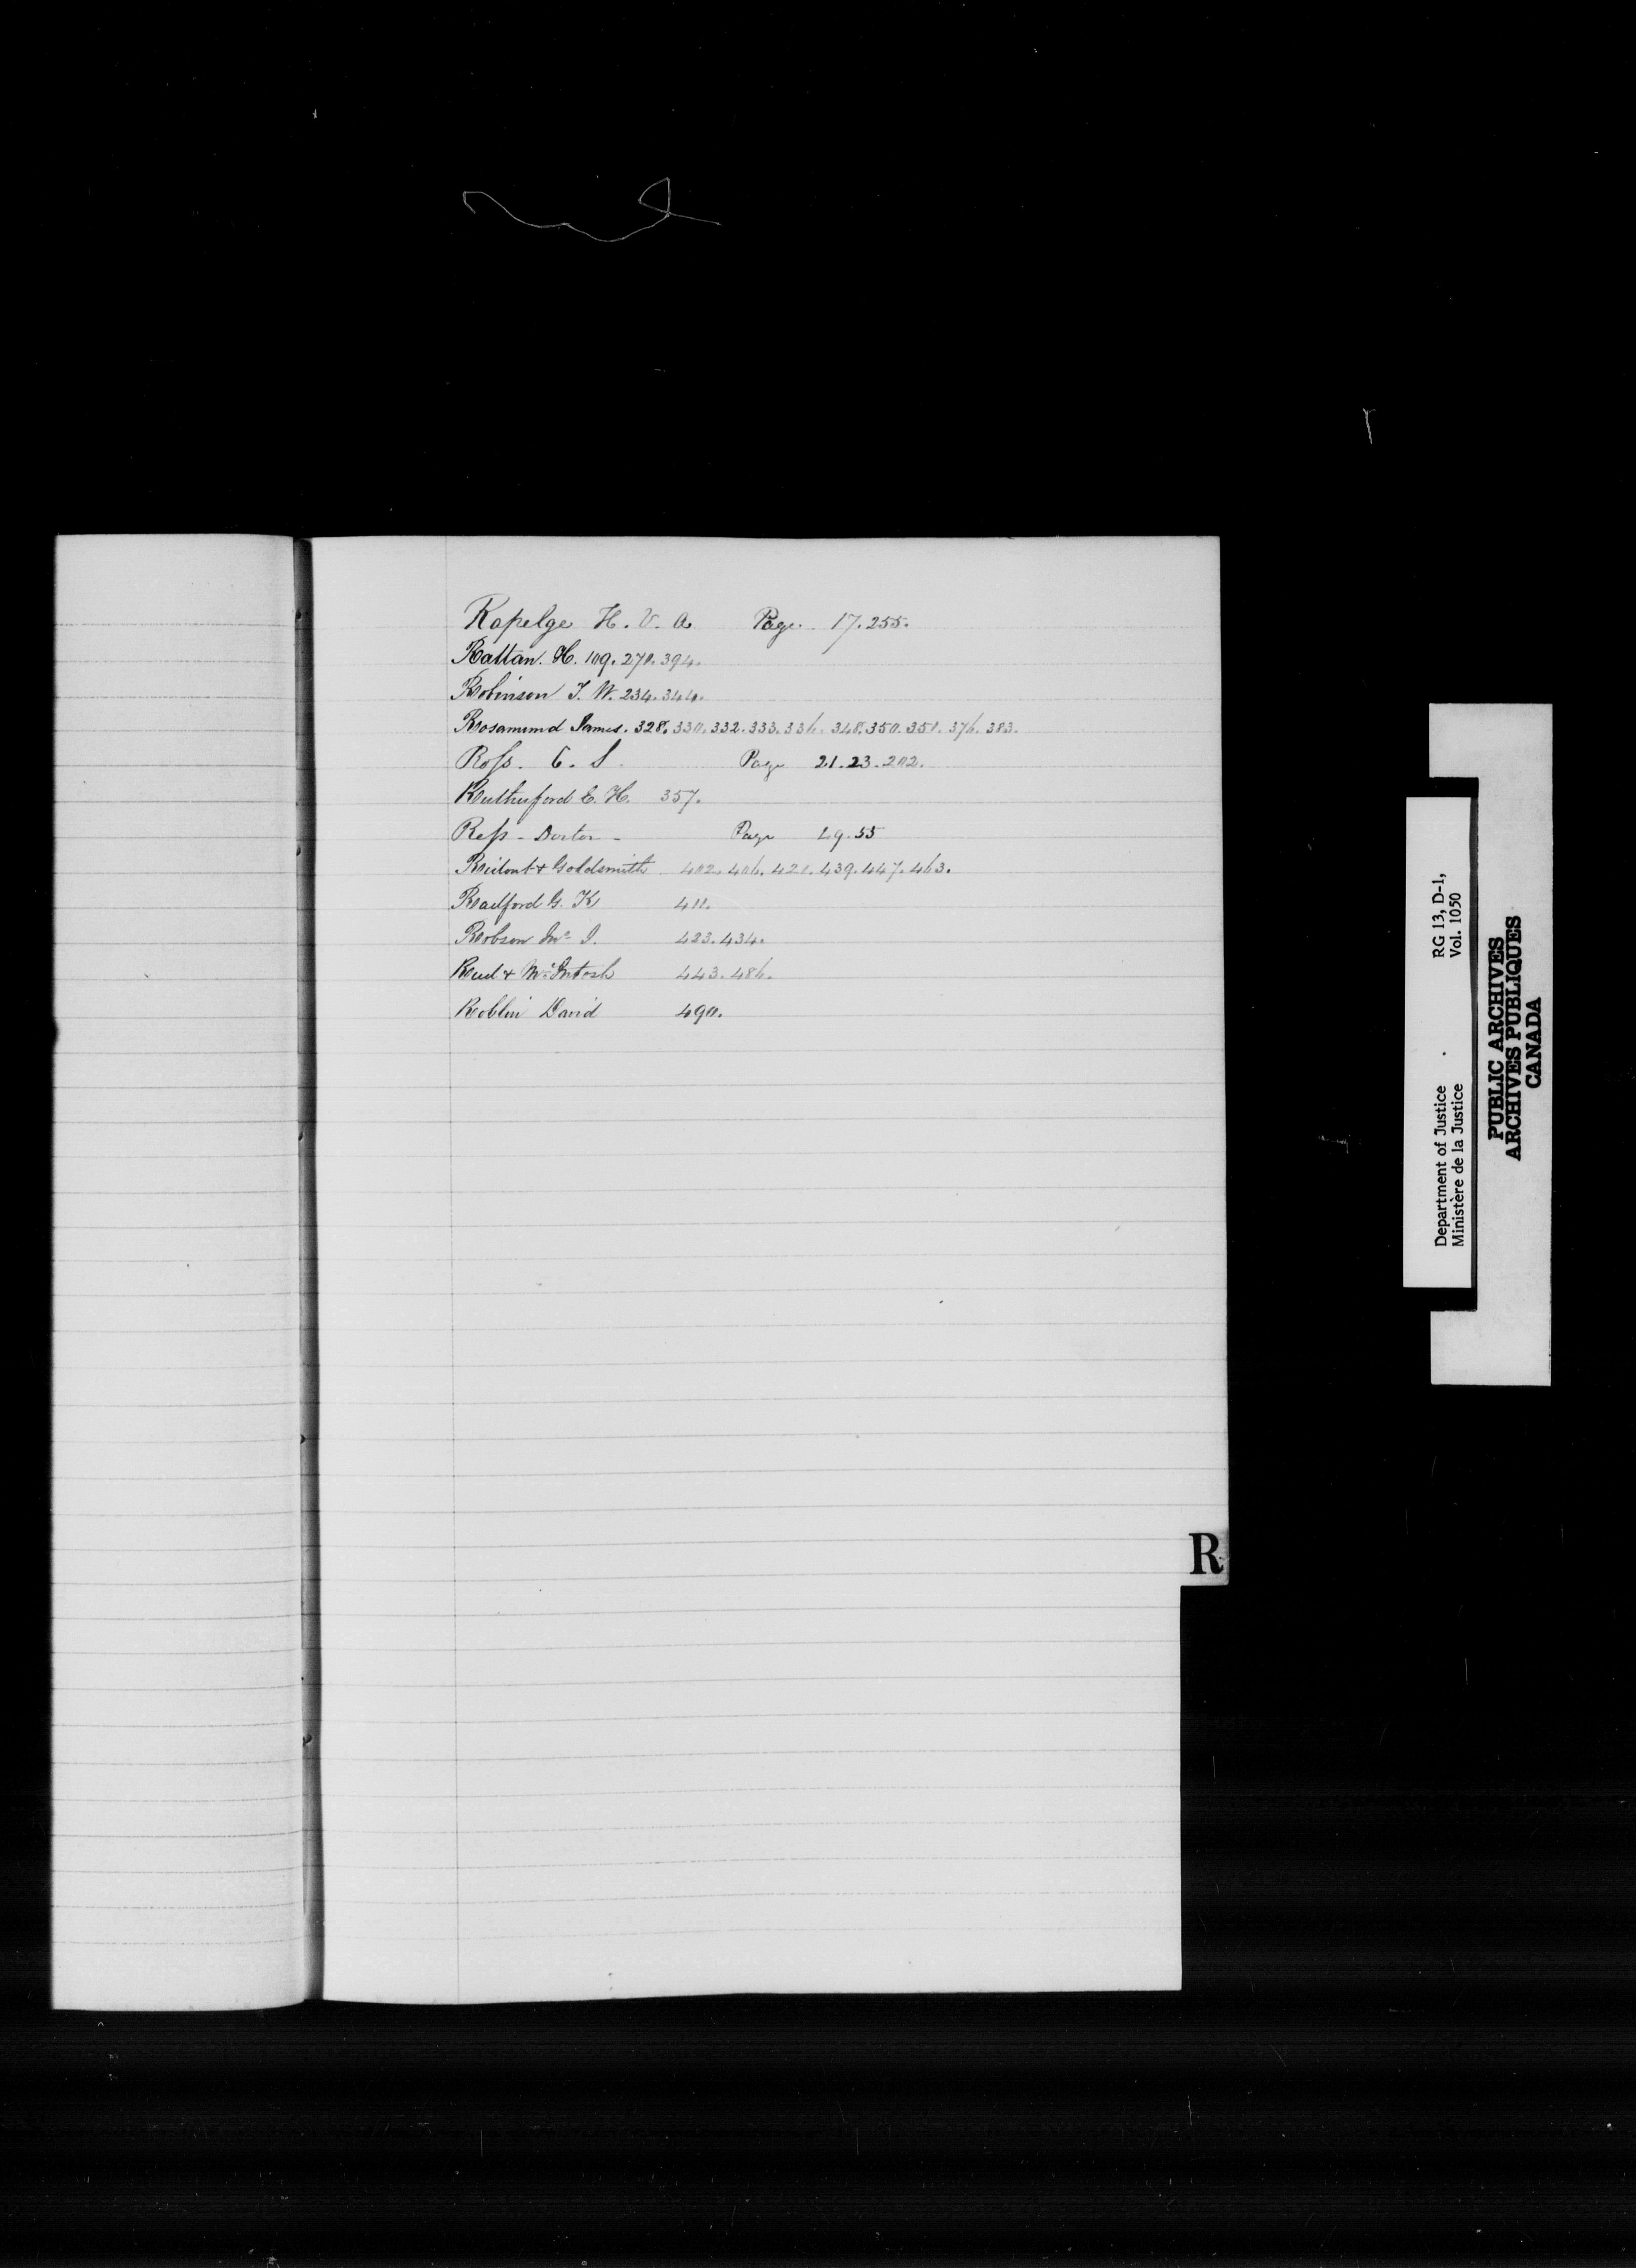 Rapelge H. V. A. Page 17. 255.
Rattan. H. 109. 270. 394.
Robinson T. W. 234. 344.
Rosamund James. 328. 330. 332. 333. 336. 348. 350. 351. 376. 383.
Ross. C. S. Page 21. 23. 202.
Rutherford E. H. 357.
Ress - Doctor - Page 29. 55
& Goldsmith 402. 406. 421. 439. 447. 463.
Radford G. K 411.
Robson Jno. I. 423. 434.
Reid & McIntosh 443. 486.
Roblin David 490.
R
Department of Justice RG 13, D-1,
Ministère de la Justice Vol. 1050
PUBLIC ARCHIVES
ARCHIVES PUBLIQUES
CANADA